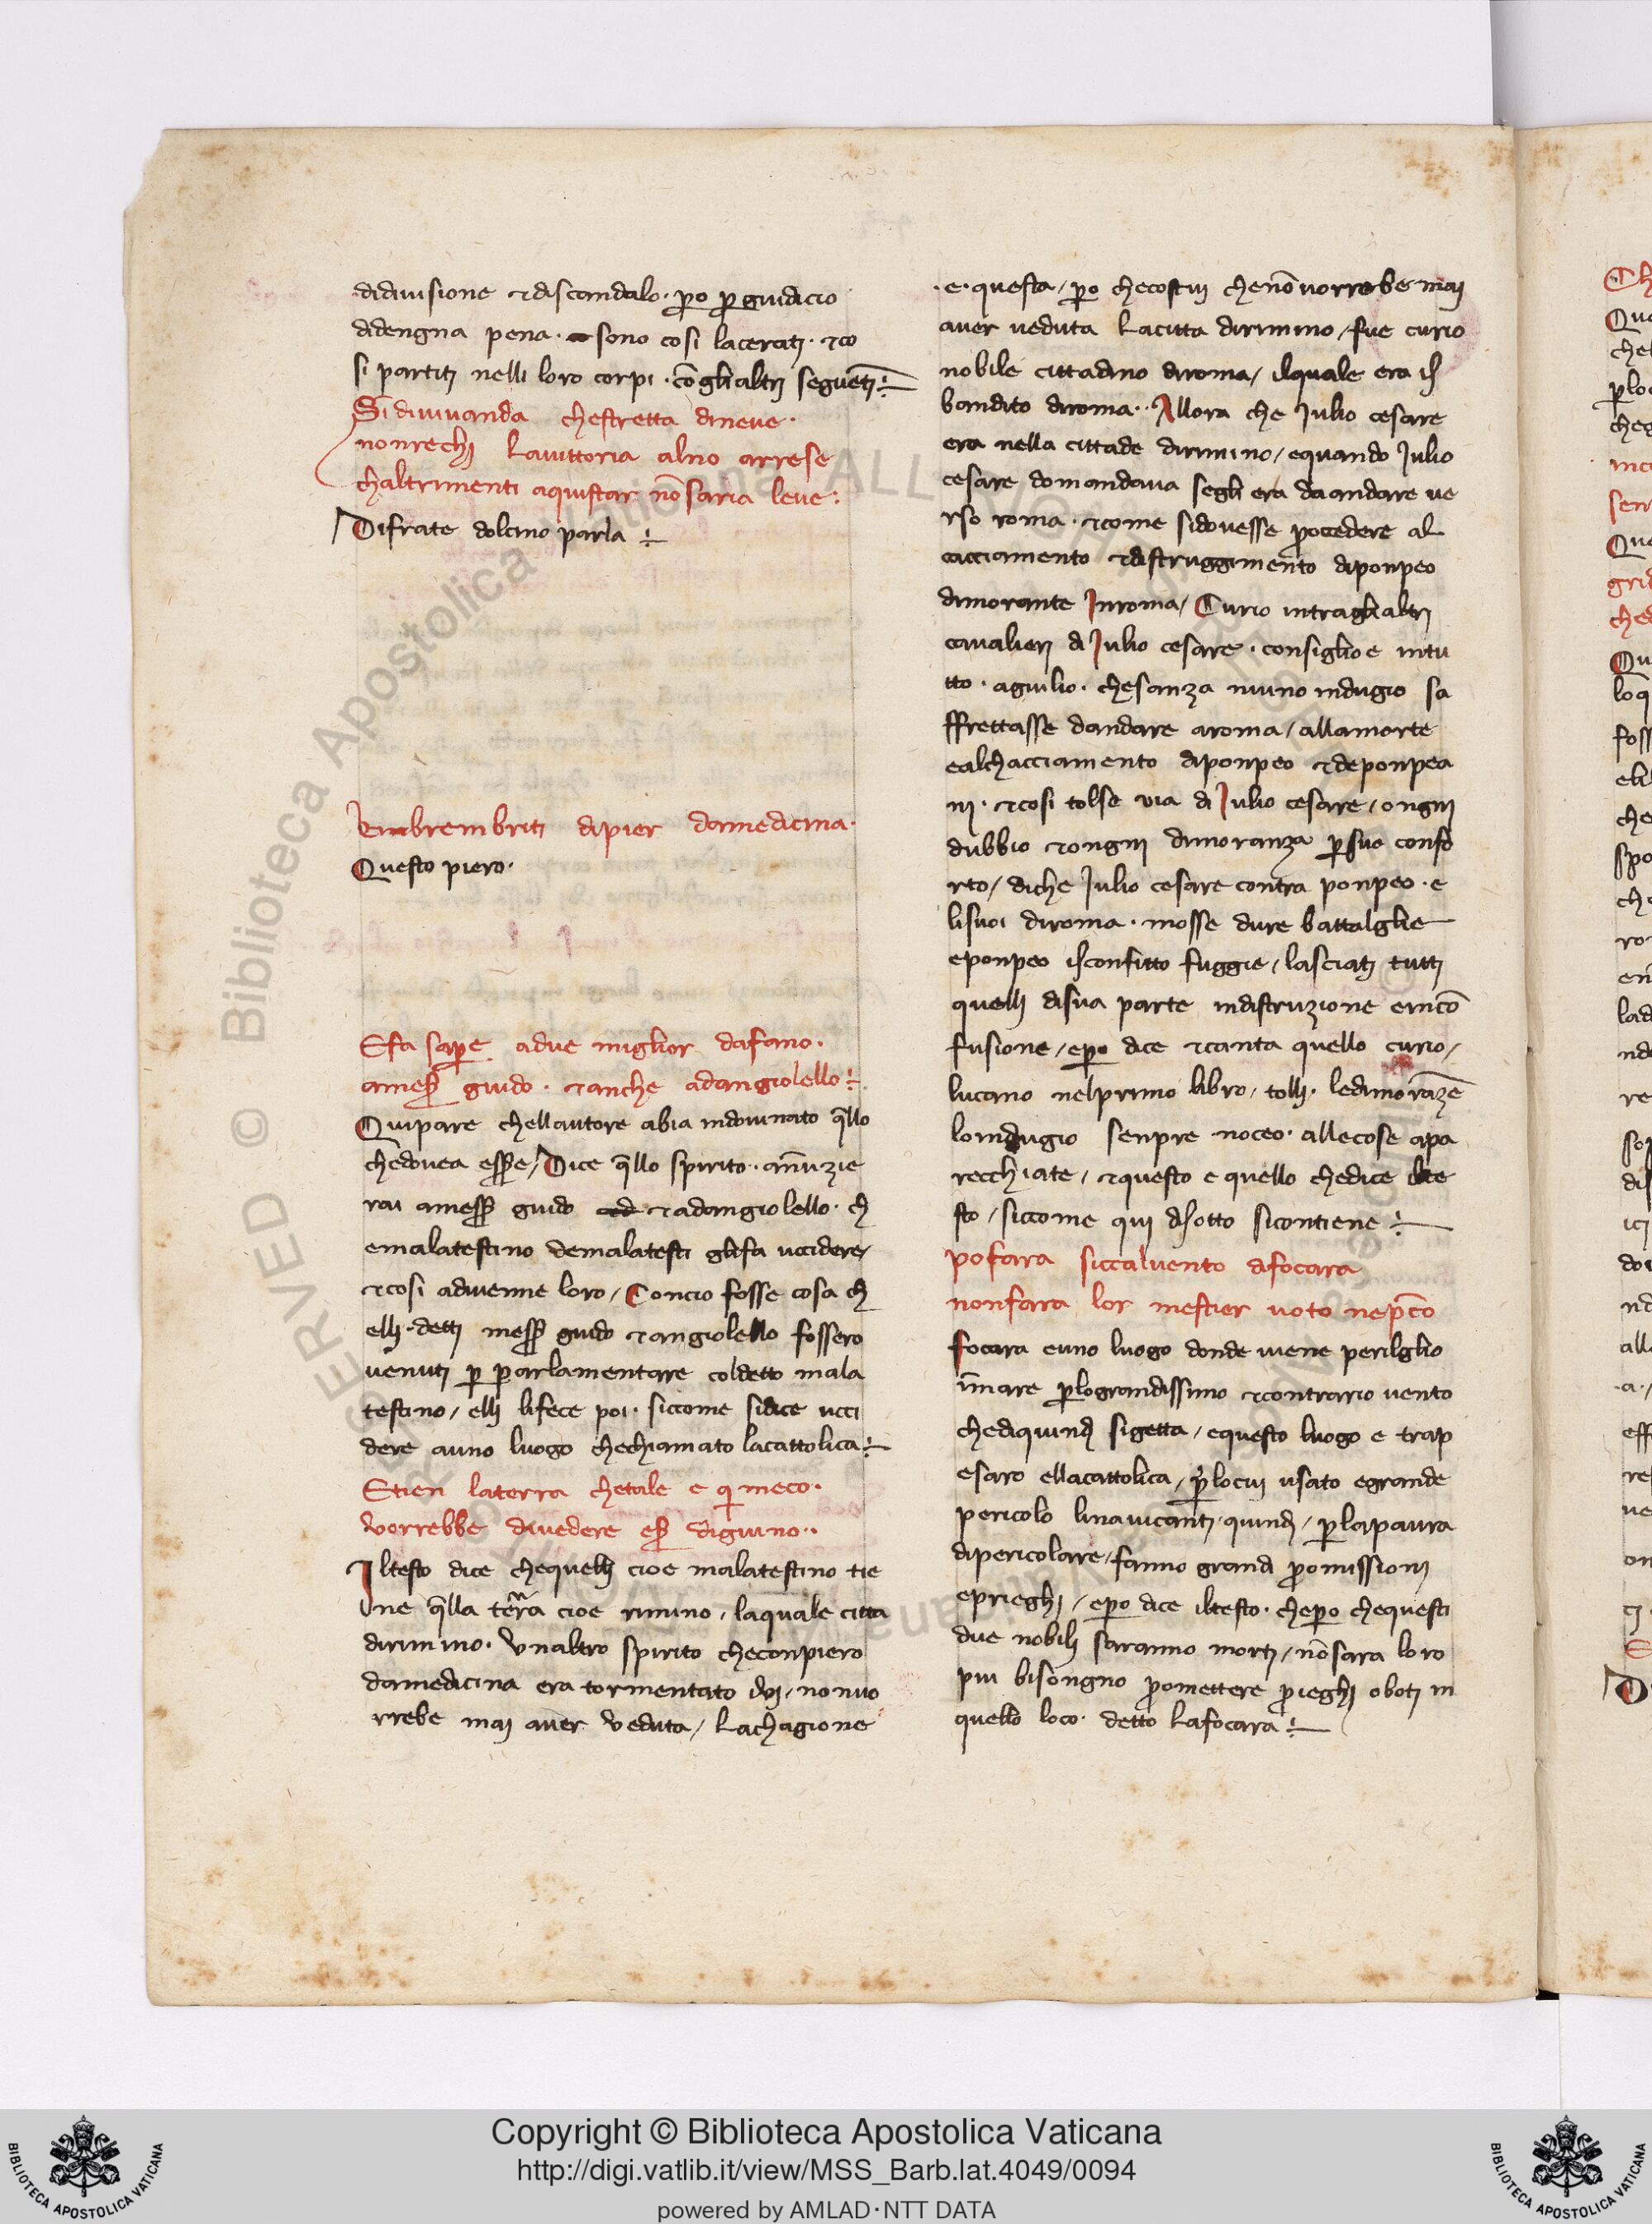 didiuisione ⁊discandalo· ꝑo ꝑ guidicio
didengna pena· sono cosi lacerati· ⁊co
si partiti nelli loro corpi· cōglialtri seguēti
Si diuiuanda chestretta dineue·
nonrechi lauittoria alno arrese
chaltrimenti aquistar nōsaria leue:
Difrate dolcino parla
Rimembriti dipier damedicina·
Questo piero·
Efa saꝑe adue miglior dafano·
ameſꝰ guido· ⁊anche adangiolello
Quipare chellautore abia indouinato q̄llo
chedouea eſſe/ Dice q̄llo spirito· annūzie
rai ameſſ guido ⁊adangiolello· ch̄
emalatestino demalatesti glifa uccidere/
⁊cosi aduenne loro/ Concio fosse cosa ch̄
elli detti meſſ guido ⁊angiolello fossero
uenuti ꝑ parlamentare coldetto mala
testino/ elli lifece poi· siccome sidice ucci
dere auno luogo chechiamato lacattolica
Etien laterra chetale e qͥ meco·
vorrebbe diuedere eſſ digiuno··
Iltesto dice chequelli cioe malatestino tie
ne q̄lla terra cioe rimino, laquale citta
dirimino· Vnaltro spirito checonpiero
damedicina era tormentato iui, nonuo
rrebe mai auer veduta/ Lachagione
·e· questa/ ꝑo checostui chenōuorrebe mai
auer ueduta Lacitta dirimino/ fue curio
nobile cittadino diroma/ ilquale era is
bandito diroma·· Allora che Julio cesare
era nella cittade dirimino/ equando Julio
cesare domandaua segli era daandare ue
rso roma· ⁊come sidouesse ꝓcedere al
cacciamento ⁊distruggimento diponpeo
dimorante Inroma/ Curio intraglialtri
caualieri di Julio cesare· consiglioe intu
tto· agiulio· chesanza niuno indugio sa
ffrettasse dandare aroma/ allamorte
ealchacciamento diponpeo ⁊deponpea
ni· ⁊cosi tolse via di Julio cesare/ ongni
dubbio ⁊ongni dimoranza ꝑsuo confo
rto/ diche Julio cesare contra ponpeo· e
lisuoi diroma· mosse dure battalglie
eponpeo isconfitto fuggie/ lasciati tutti
quelli disua parte indistruzione eincō
fusione/ eꝑo dice ⁊canta quello curio/
lucano nelprimo libro/ tolli· ledimorāzē
loindugio senpre noceo· allecose apa
recchiate/ ⁊questo e quello chedice ilte
sto/ siccome qui disotto sicontiene
pofara siccaluento difocara
nonfara lor mestier uoto nep̄co
Focara euno luogo donde uiene perilglio
īmare ꝑlograndissimo ⁊contrario uento
chediquindi sigetta/ equesto luogo e trap
esaro ellacattolica/ ꝑlocui usato egrande
pericolo linauicanti· quindi/ ꝑlapaura
dipericolare/ fanno grandi ꝓmissioni
eprieghi/ eꝑo dice iltesto· cheꝑo chequesti
due nobili saranno morti/ nōsara loro
piu bisongno ꝓmettere prieghi oboti in
quello loco· detto Lafocara
Copyright © Biblioteca Apostolica Vaticana
http://digi.vatlib.it/view/MSS_Barb.lat.4049/0094
powered by AMLAD·NTT DATA